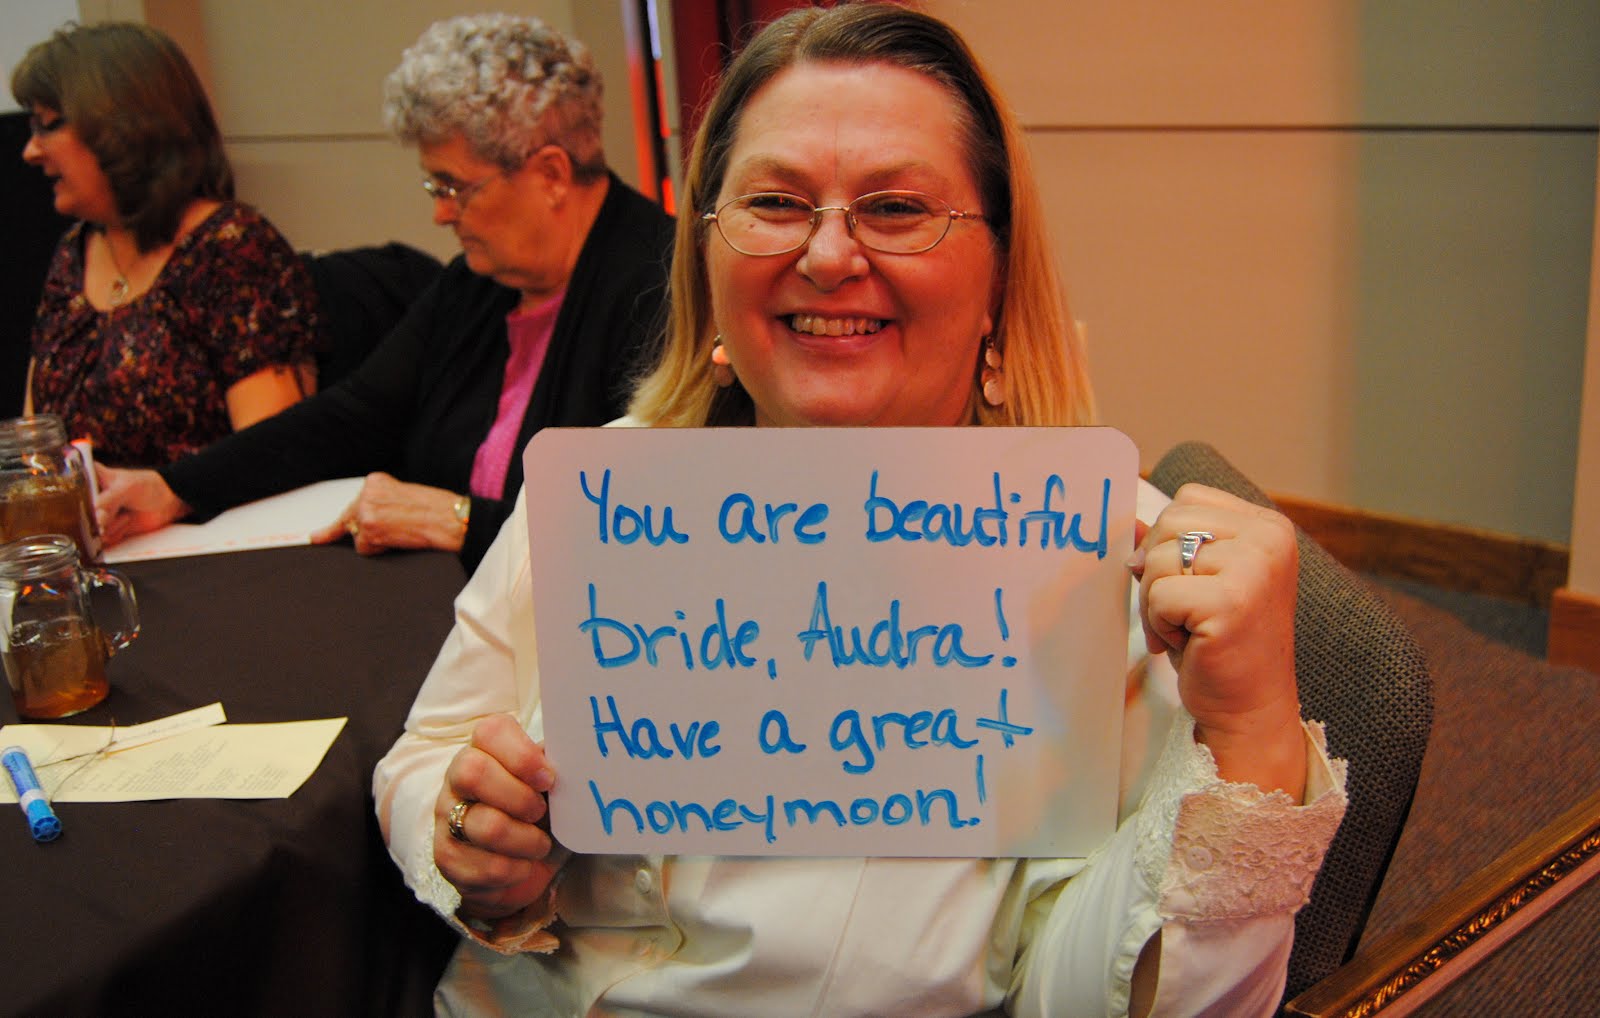 You are beautiful
bride, Audra!
Have a great
honeymoon!